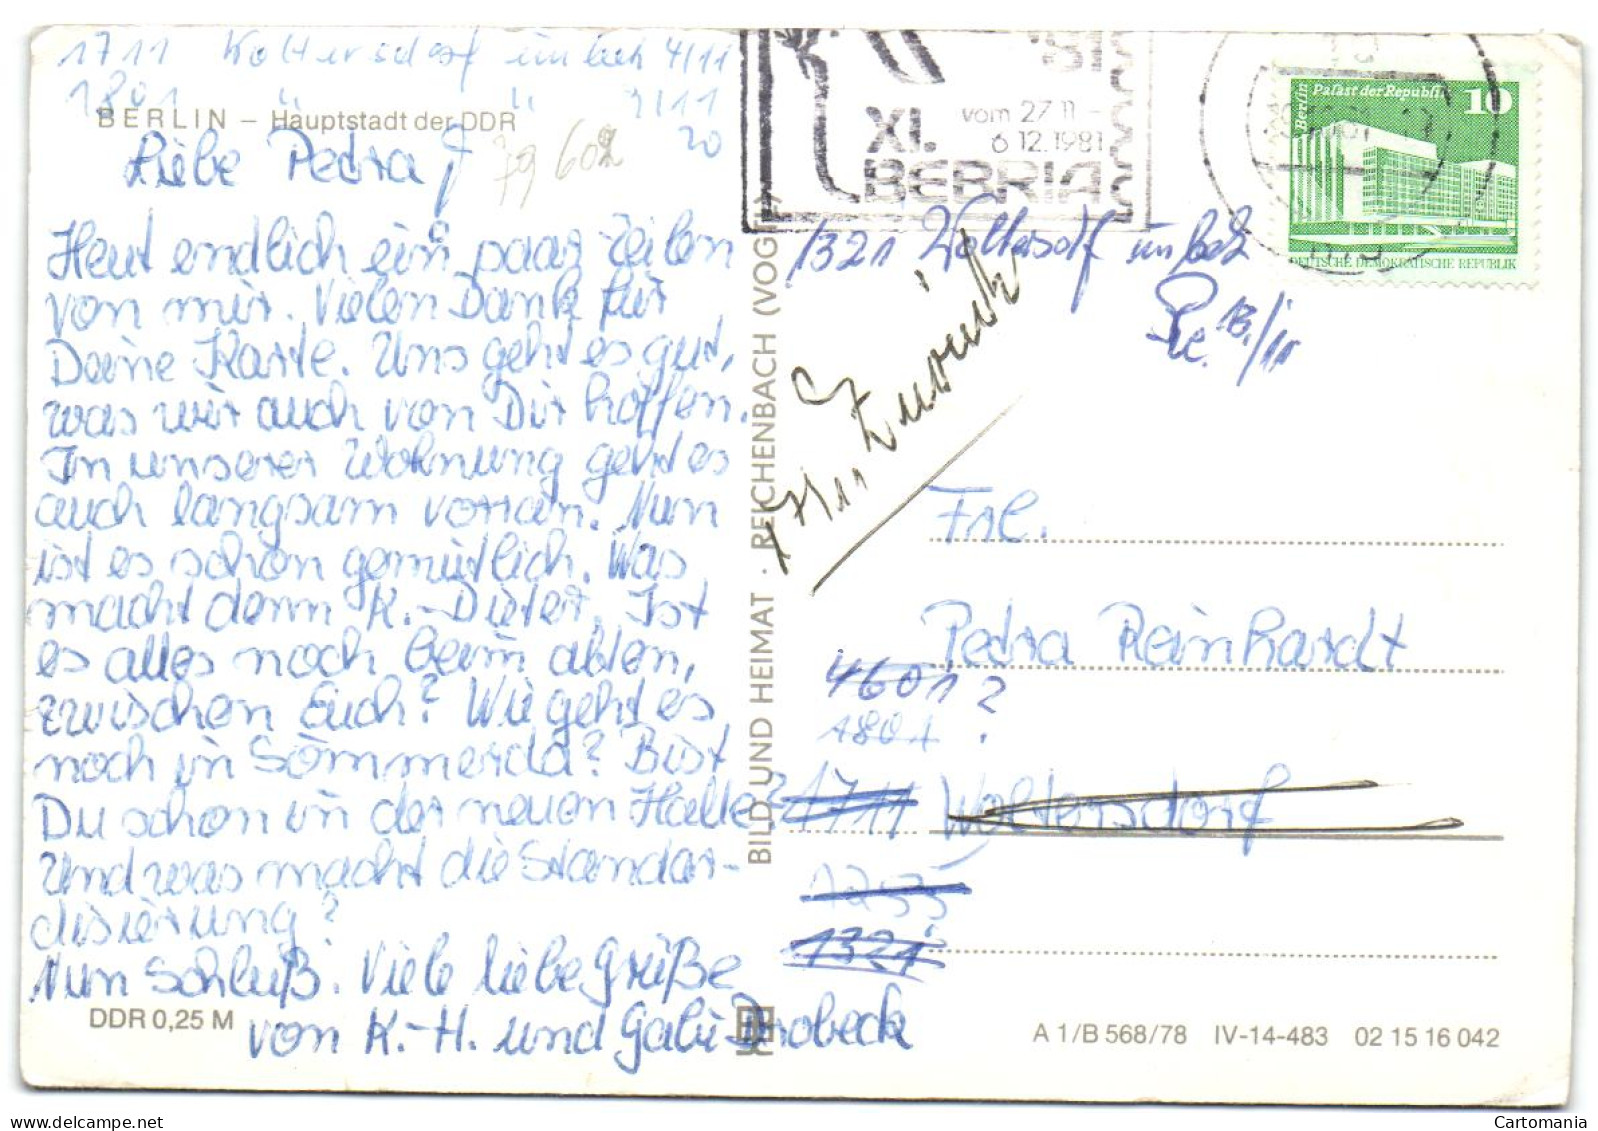 1711 Woltersdorf unbek 4/11
1801 " " 3/11
20
BERLIN – Hauptstadt der DDR
Liebe Pedra!
79 602
Heut endlich ein paar Zeilen
von mir. Vielen Dank für
Deine Karte. Uns geht es gut,
was wir auch von Dir hoffen.
In unserer Wohnung geht es
auch langsam vorran. Nun
ist es schon gemütlich. Was
macht denn K.-Dieter. Ist
es alles noch beim alten,
zwischen Euch? Wie geht es
noch in Sömmerda? Bist
Du schon in der neuen Halle?
Und was macht die Standar-
disierung?
Nun Schluß. Viele liebe Grüße
von K.-H. und Gabi Drobeck
DDR 0,25 M
BILD UND HEIMAT · REICHENBACH (VOGTL)
'81
XI.
vom 27 11 –
6 12.1981
BEBRIA
Berlin Palast der Republik 10
DEUTSCHE DEMOKRATISCHE REPUBLIK
1321 Woltersdf unbek
13./11
1711 Zurück
Frl.
Pedra Reinhardt
4601?
1801 ?
1711 Woltersdorf
1255
1321
A 1/B 568/78 IV-14-483 02 15 16 042
Cartomania